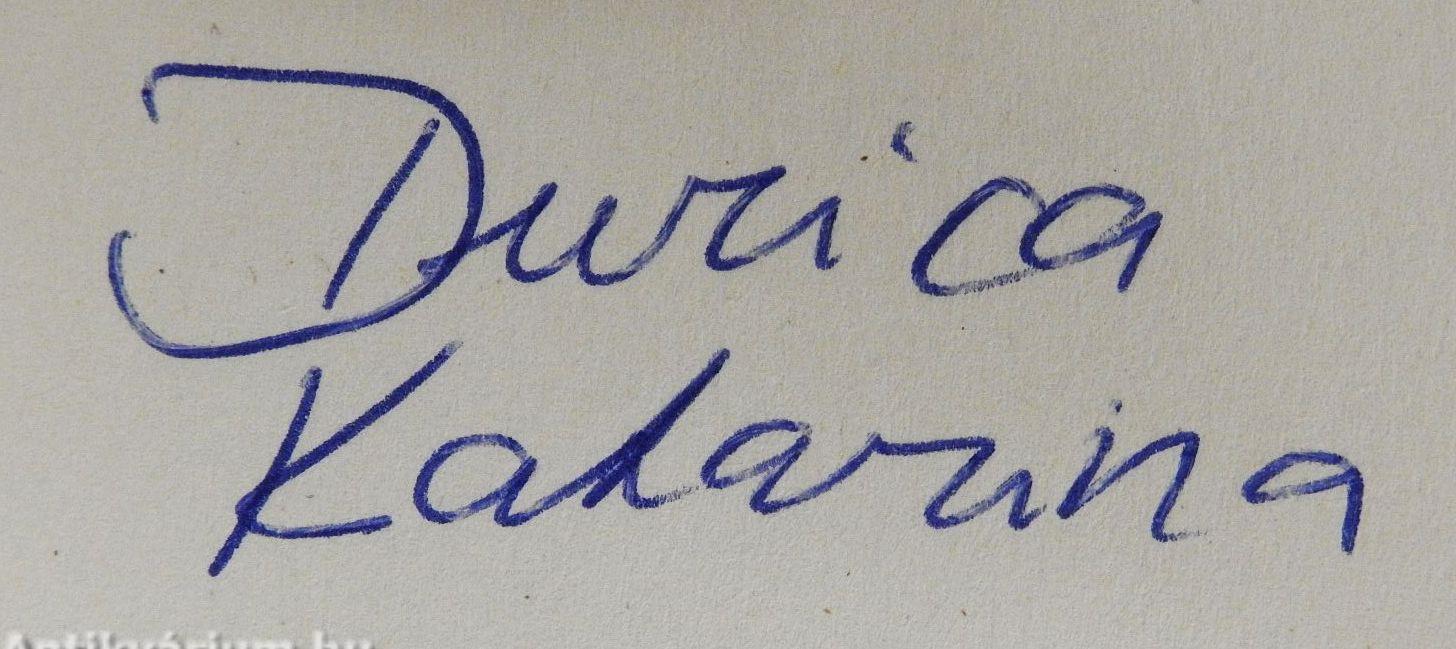 Durica
Katarina
Antikvárium.hu